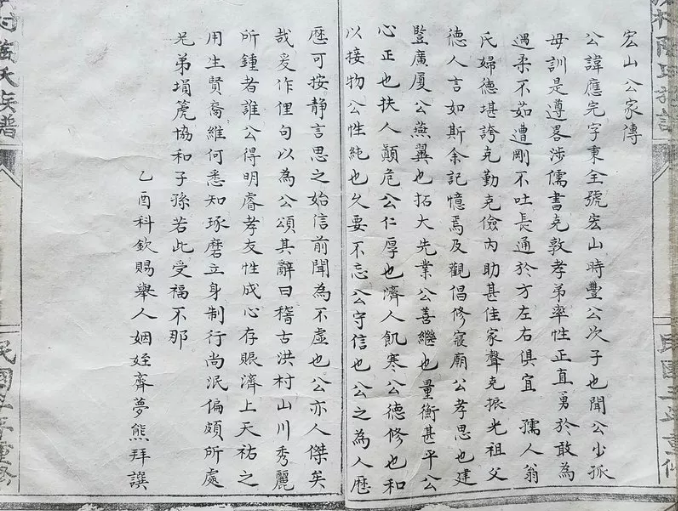 宏山公家傳
公諱應完字秉全號宏山時豐公次子也聞公少孤
母訓是遵畧涉儒書克敦孝弟率性正直勇於敢為
遇柔不茹遭剛不吐長通於方左右俱宜 孺人翁
氏婦德堪誇克勤克儉內助甚佳家聲克振光祖父
德人言如斯余記憶焉及觀倡修寢廟公孝思也建
豎廣厦公燕翼也拓大先業公善繼也量衡甚平公
心正也扶人顛危公仁厚也濟人飢寒公德修也和
以接物公性純也久要不忘公守信也公之為人歷
歷可按静言思之始信前聞為不虛也公亦人傑矣
哉爰作俚句以為公頌其辭曰稽古洪村山川秀麗
所鍾者誰公得明睿孝友性成心存賑濟上天祐之
用生賢裔維何悉知琢磨立身制行尚泯偏頗所處
兄弟塤箎協和子孫若此受福不那
乙酉科欽賜舉人姻姪齊夢熊拜譔